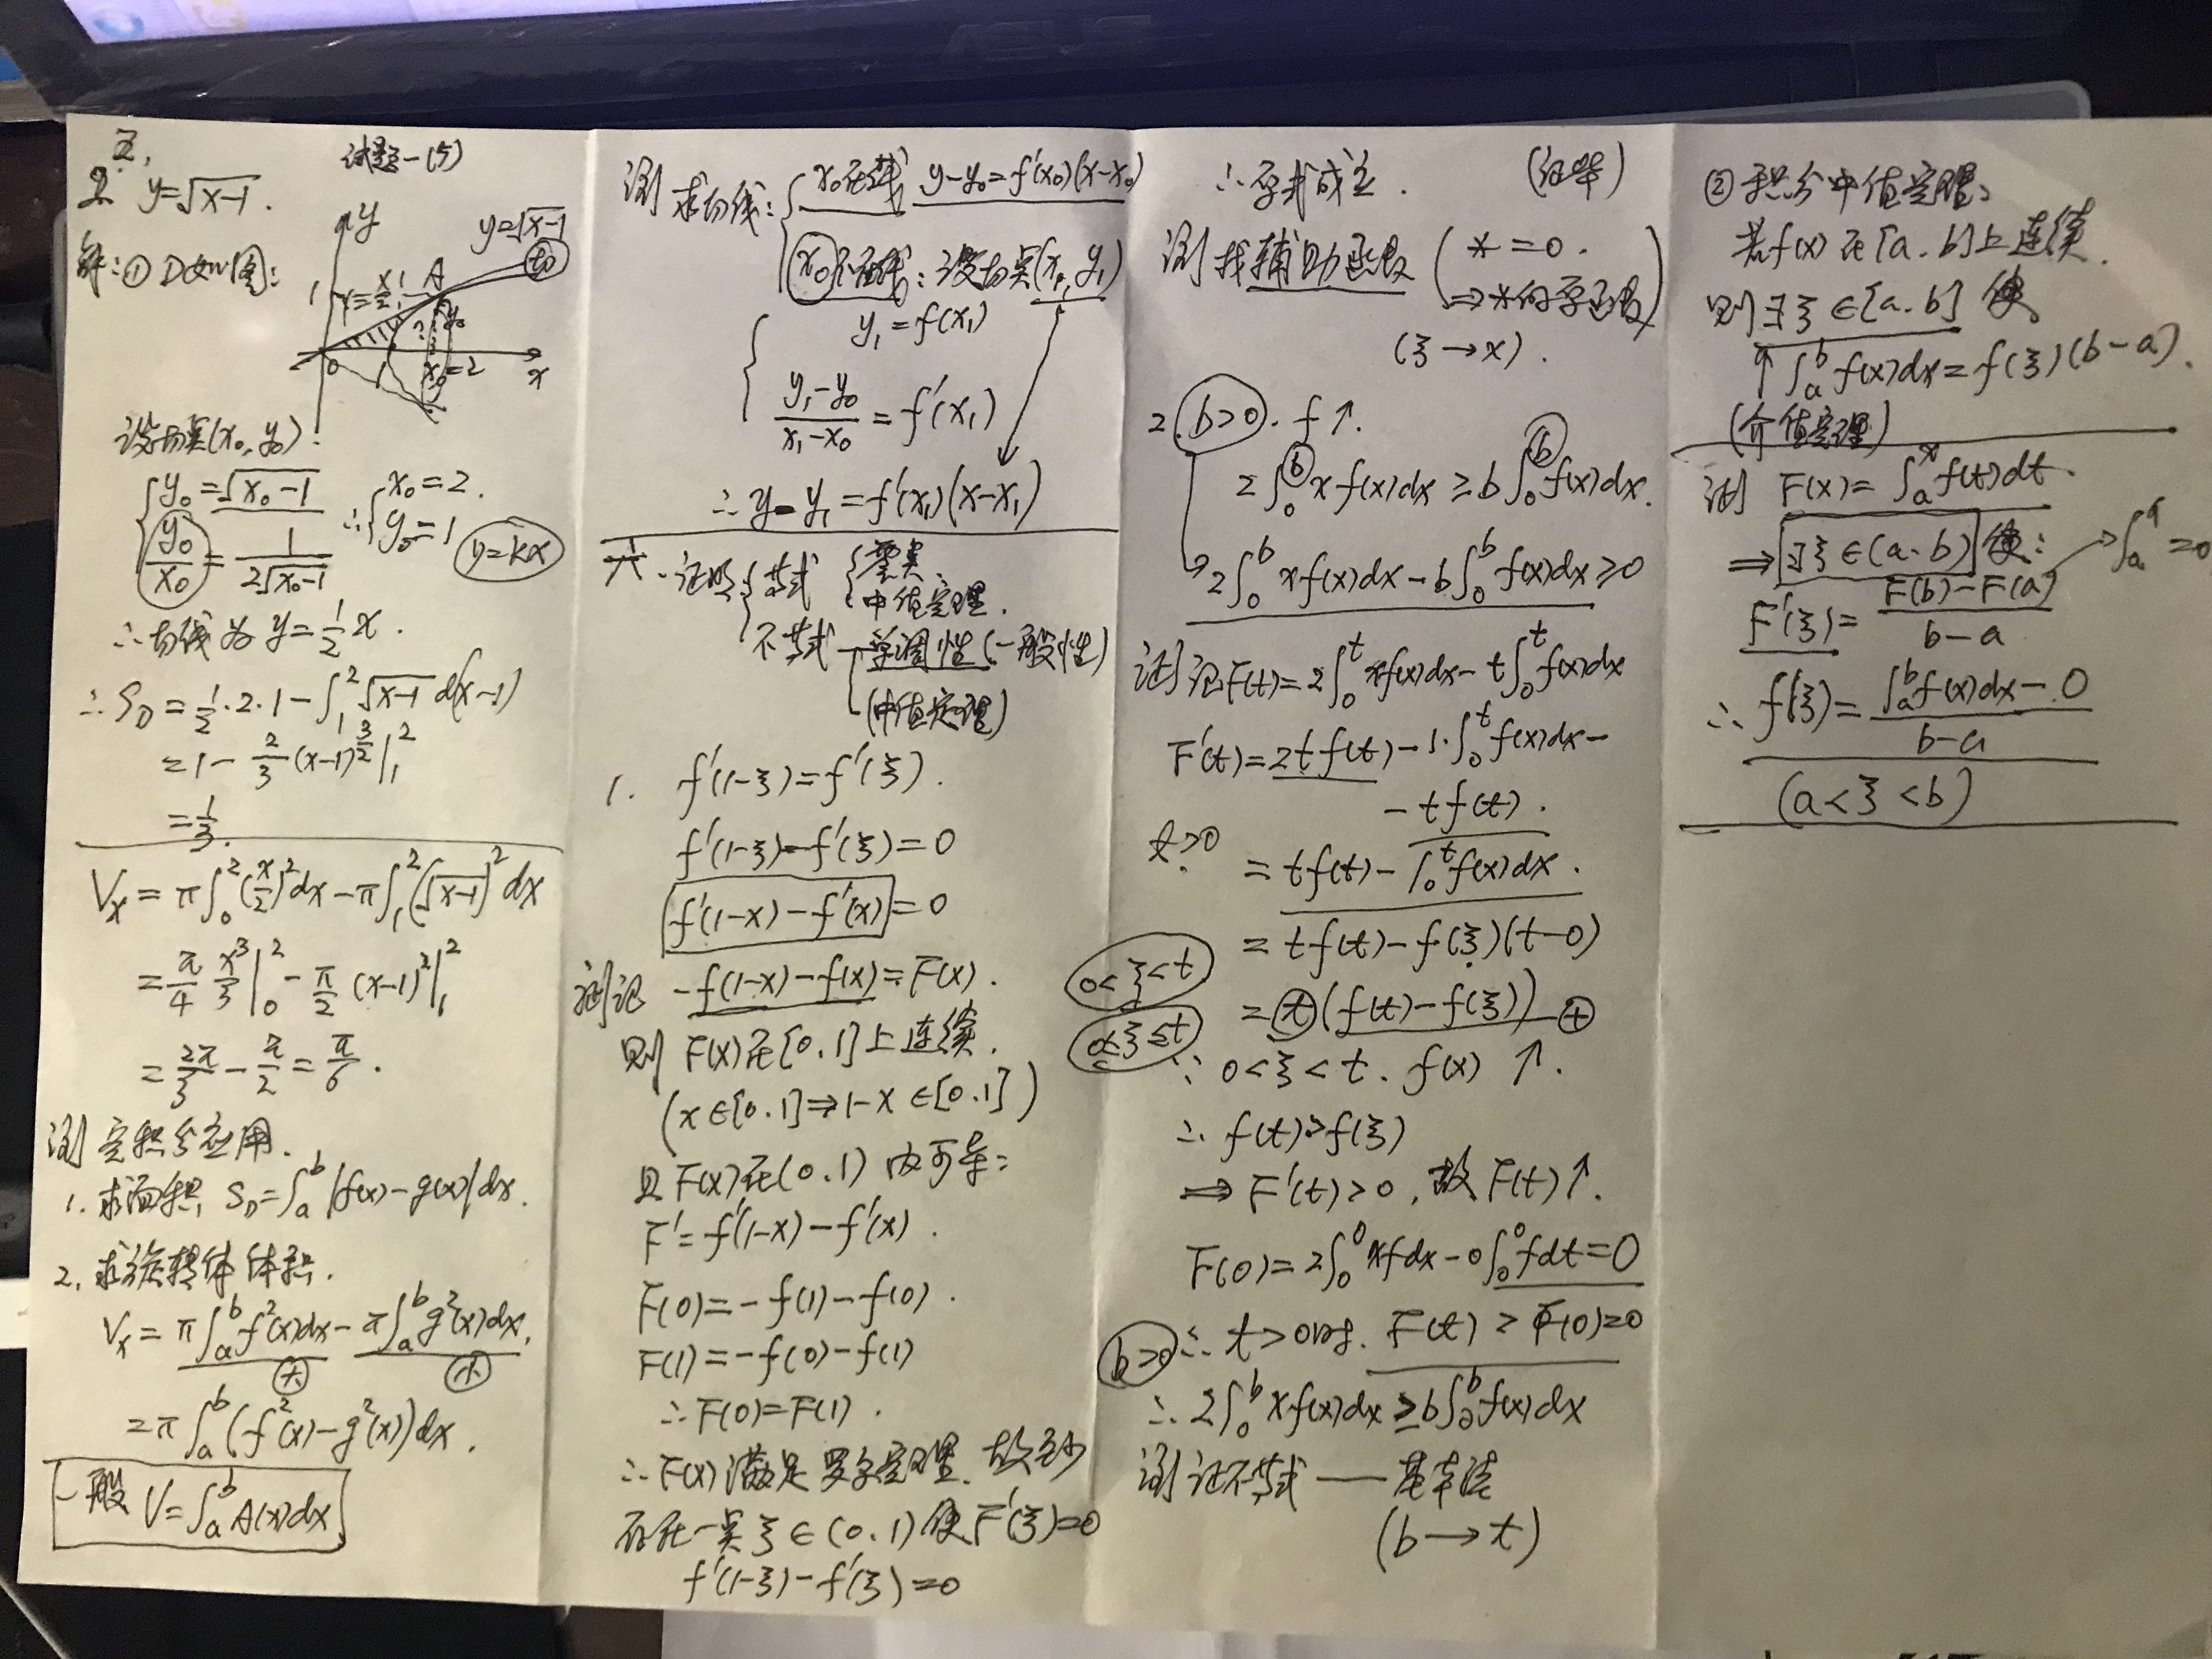 试题一(5)
五、
2. y=√(x-1).
解:① D如图:
y
y=√(x-1)
1
y=x/2
A
y₀
0
1
x₀=2
x
设切点(x₀,y₀):
{ y₀=√(x₀-1)
y₀/x₀ = 1/(2√(x₀-1))
∴ { x₀=2.
y₀=1
y=kx
∴切线为 y=½x.
∴ S_D = ½·2·1 - ∫₁² √(x-1) d(x-1)
= 1 - ⅔ (x-1)^(3/2) |₁²
= ⅓.
Vx = π∫₀² (x/2)² dx - π∫₁² (√(x-1))² dx
= π/4 x³/3 |₀² - π/2 (x-1)² |₁²
= 2π/3 - π/2 = π/6.
注 定积分应用.
1. 求面积, S_D=∫ₐᵇ |f(x)-g(x)| dx.
2. 求旋转体体积.
Vx = π∫ₐᵇ f²(x)dx - π∫ₐᵇ g²(x)dx,
大 小
= π∫ₐᵇ (f²(x)-g²(x)) dx.
一般 V=∫ₐᵇ A(x)dx
注 求切线: { x₀在线 y-y₀=f'(x₀)(x-x₀)
x₀不在线: 设切点(x₁,y₁)
{ y₁=f(x₁)
(y₁-y₀)/(x₁-x₀) = f'(x₁)
∴ y-y₁=f'(x₁)(x-x₁)
六. 证明 { 等式 { 零点、
中值定理.
不等式 单调性 (一般性)
(中值定理)
1. f'(1-ξ)=f'(ξ).
f'(1-ξ)-f'(ξ)=0
f'(1-x)-f'(x)=0
证:记 -f(1-x)-f(x)=F(x).
则 F(x)在[0.1]上连续.
(x∈[0.1]⇒1-x∈[0.1])
且F(x)在(0.1)内可导:
F'=f'(1-x)-f'(x).
F(0)=-f(1)-f(0).
F(1)=-f(0)-f(1)
∴F(0)=F(1).
∴F(x)满足罗尔定理. 故至少
存在一点ξ∈(0.1)使F'(ξ)=0
f'(1-ξ)-f'(ξ)=0
∴原式成立. (证毕)
注 找辅助函数 ( *=0.
⇒*的原函数 )
(ξ→x).
2. b>0. f↑.
2∫₀ᵇ xf(x)dx ≥ b∫₀ᵇ f(x)dx.
2∫₀ᵇ xf(x)dx - b∫₀ᵇ f(x)dx ≥0
证:记F(t)=2∫₀ᵗ xf(x)dx - t∫₀ᵗ f(x)dx
F'(t)=2tf(t)-1·∫₀ᵗ f(x)dx-
-tf(t).
t>0
=tf(t)-∫₀ᵗ f(x)dx.
=tf(t)-f(ξ)(t-0)
0<ξ<t
=t(f(t)-f(ξ)) ⊕
0≤ξ≤t
∵ 0<ξ<t. f(x)↑.
∴ f(t)>f(ξ)
⇒ F'(t)>0, 故F(t)↑.
F(0)=2∫₀⁰ xfdx-0∫₀⁰ fdt=0
b>0 ∴ t>0时. F(t)≥F(0)=0
∴ 2∫₀ᵇ xf(x)dx≥b∫₀ᵇ f(x)dx
注 证不等式——基本法
(b→t)
② 积分中值定理:
若f(x)在[a.b]上连续.
则∃ξ∈[a.b] 使
∫ₐᵇ f(x)dx=f(ξ)(b-a).
(介值定理)
证 F(x)=∫ₐˣ f(t)dt.
⇒∃ξ∈(a.b) 使:
F'(ξ)=(F(b)-F(a))/(b-a)
→∫ₐᵃ=0
∴ f(ξ)=(∫ₐᵇ f(x)dx-0)/(b-a)
(a<ξ<b)